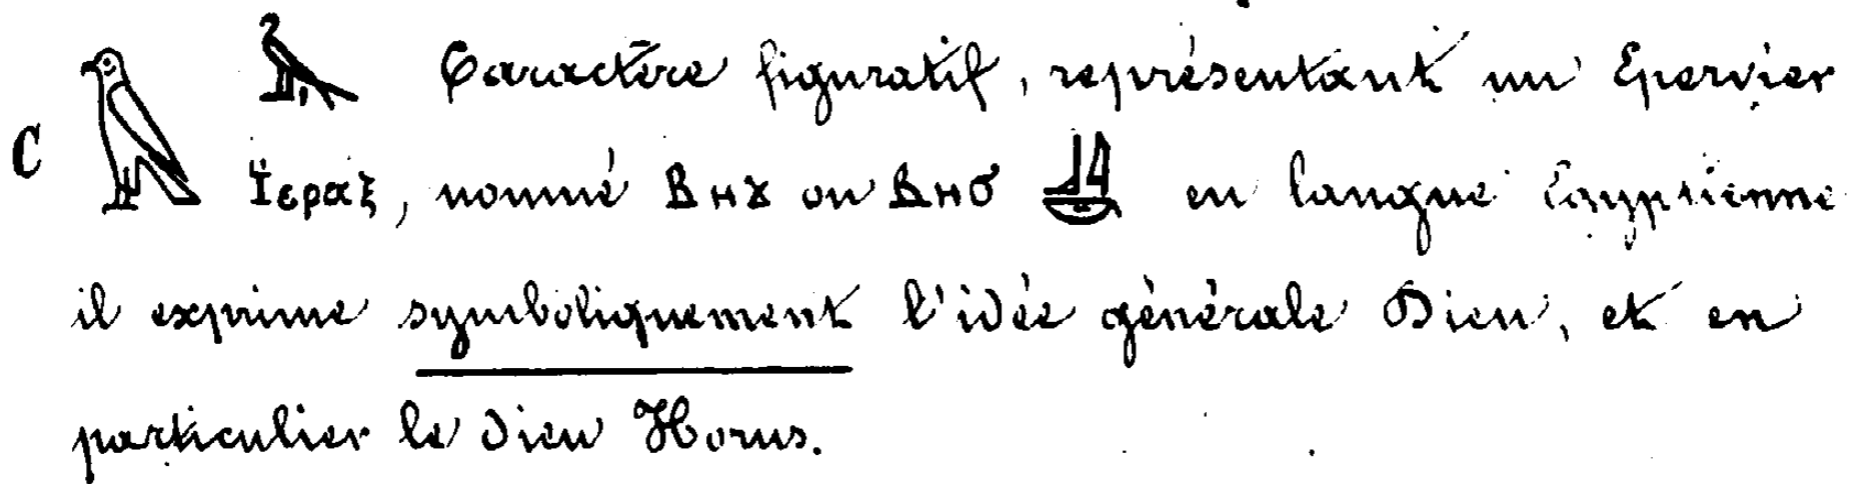 C 𓅃 Caractère figuratif, représentant un Epervier
Ϊεραξ, nommé Ⲃⲏϫ ou Ⲃⲏϭ en langue Egyptienne
il exprime symboliquement l'idée générale Dieu, et en
particulier le Dieu Horus.